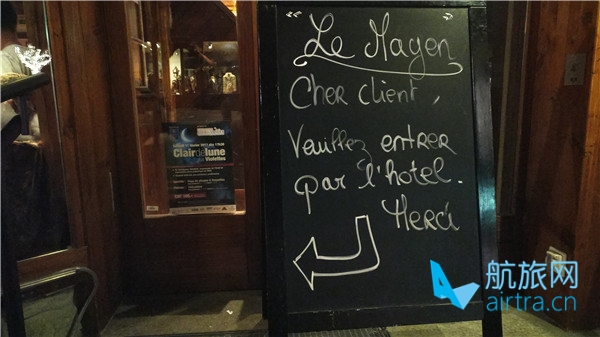 "Le Mayen"
Cher client,
Veuillez entrer
par l'hotel.
Merci
Clair de lune
Violettes
航旅网
airtra.cn